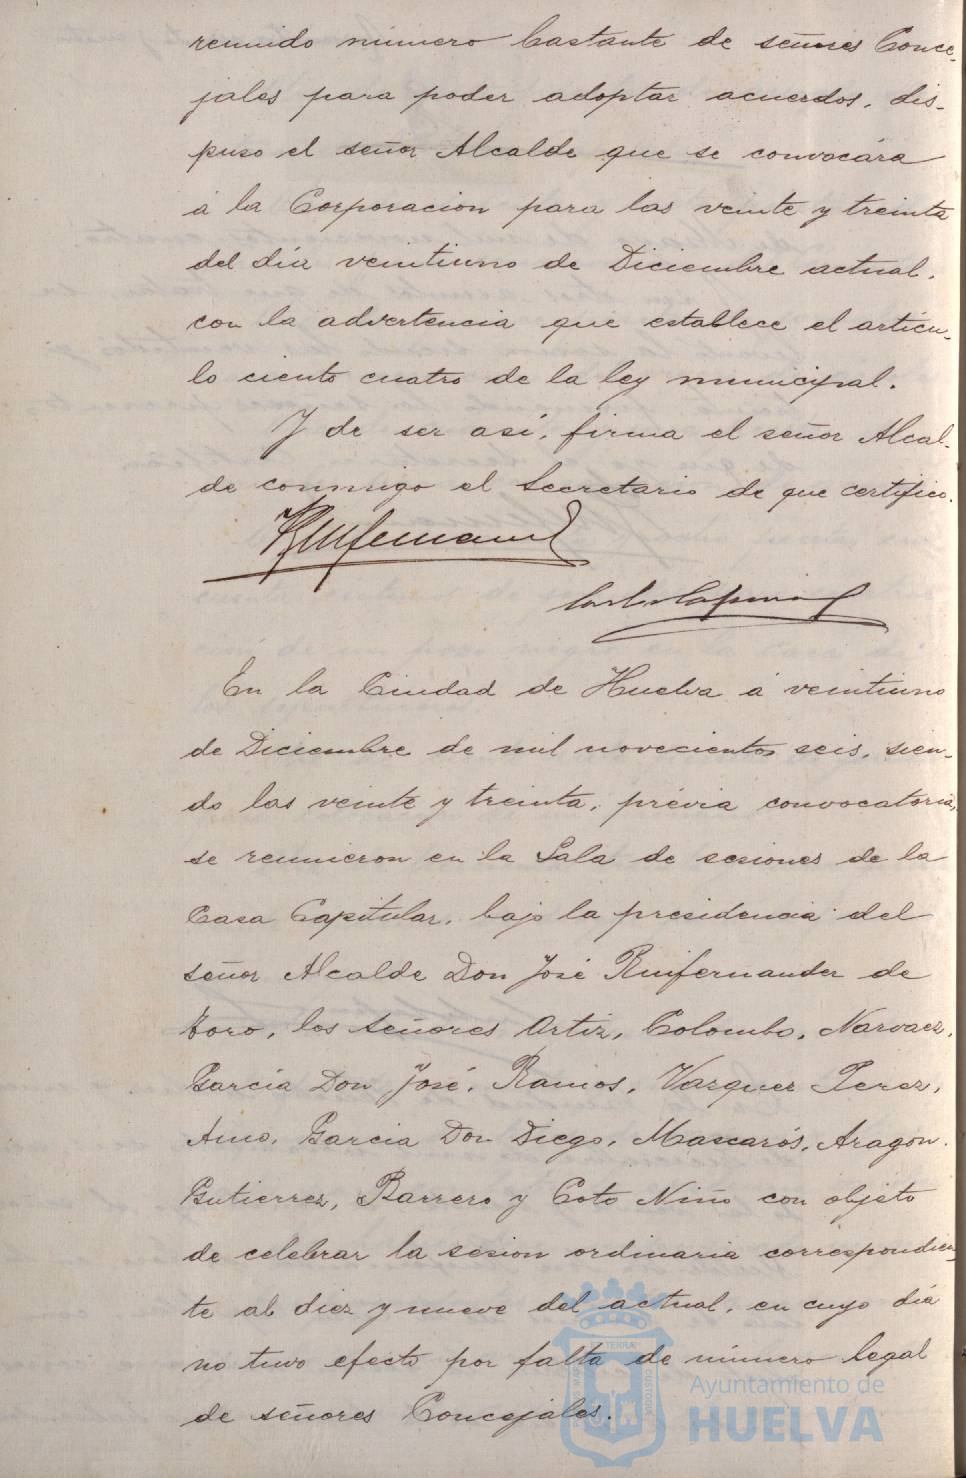 reunido número bastante de señores Conce-
jales para poder adoptar acuerdos, dis-
puso el señor Alcalde que se convocára
á la Corporacion para las veinte y treinta
del día veintiuno de Diciembre actual,
con la advertencia que establece el artícu-
lo ciento cuatro de la ley municipal.
Y de ser así, firma el señor Alcal-
de conmigo el Secretario de que certifico.
En la Ciudad de Huelva á veintiuno
de Diciembre de mil novecientos seis, sien-
do las veinte y treinta, prévia convocatoria,
se reunieron en la Sala de sesiones de la
Casa Capitular, bajo la presidencia del
señor Alcalde Don José Ruifernandez de
Toro, los señores Ortiz, Colombo, Narvaez,
García Don José, Ramos, Vazquez Perez,
Amo, Garcia Don Diego, Mascarós, Aragon,
Gutierrez, Barrero y Coto Niño con objeto
de celebrar la sesion ordinaria correspondien-
te al diez y nueve del actual, en cuyo día
no tuvo efecto por falta de número legal
de señores Concejales.
Ayuntamiento de
HUELVA